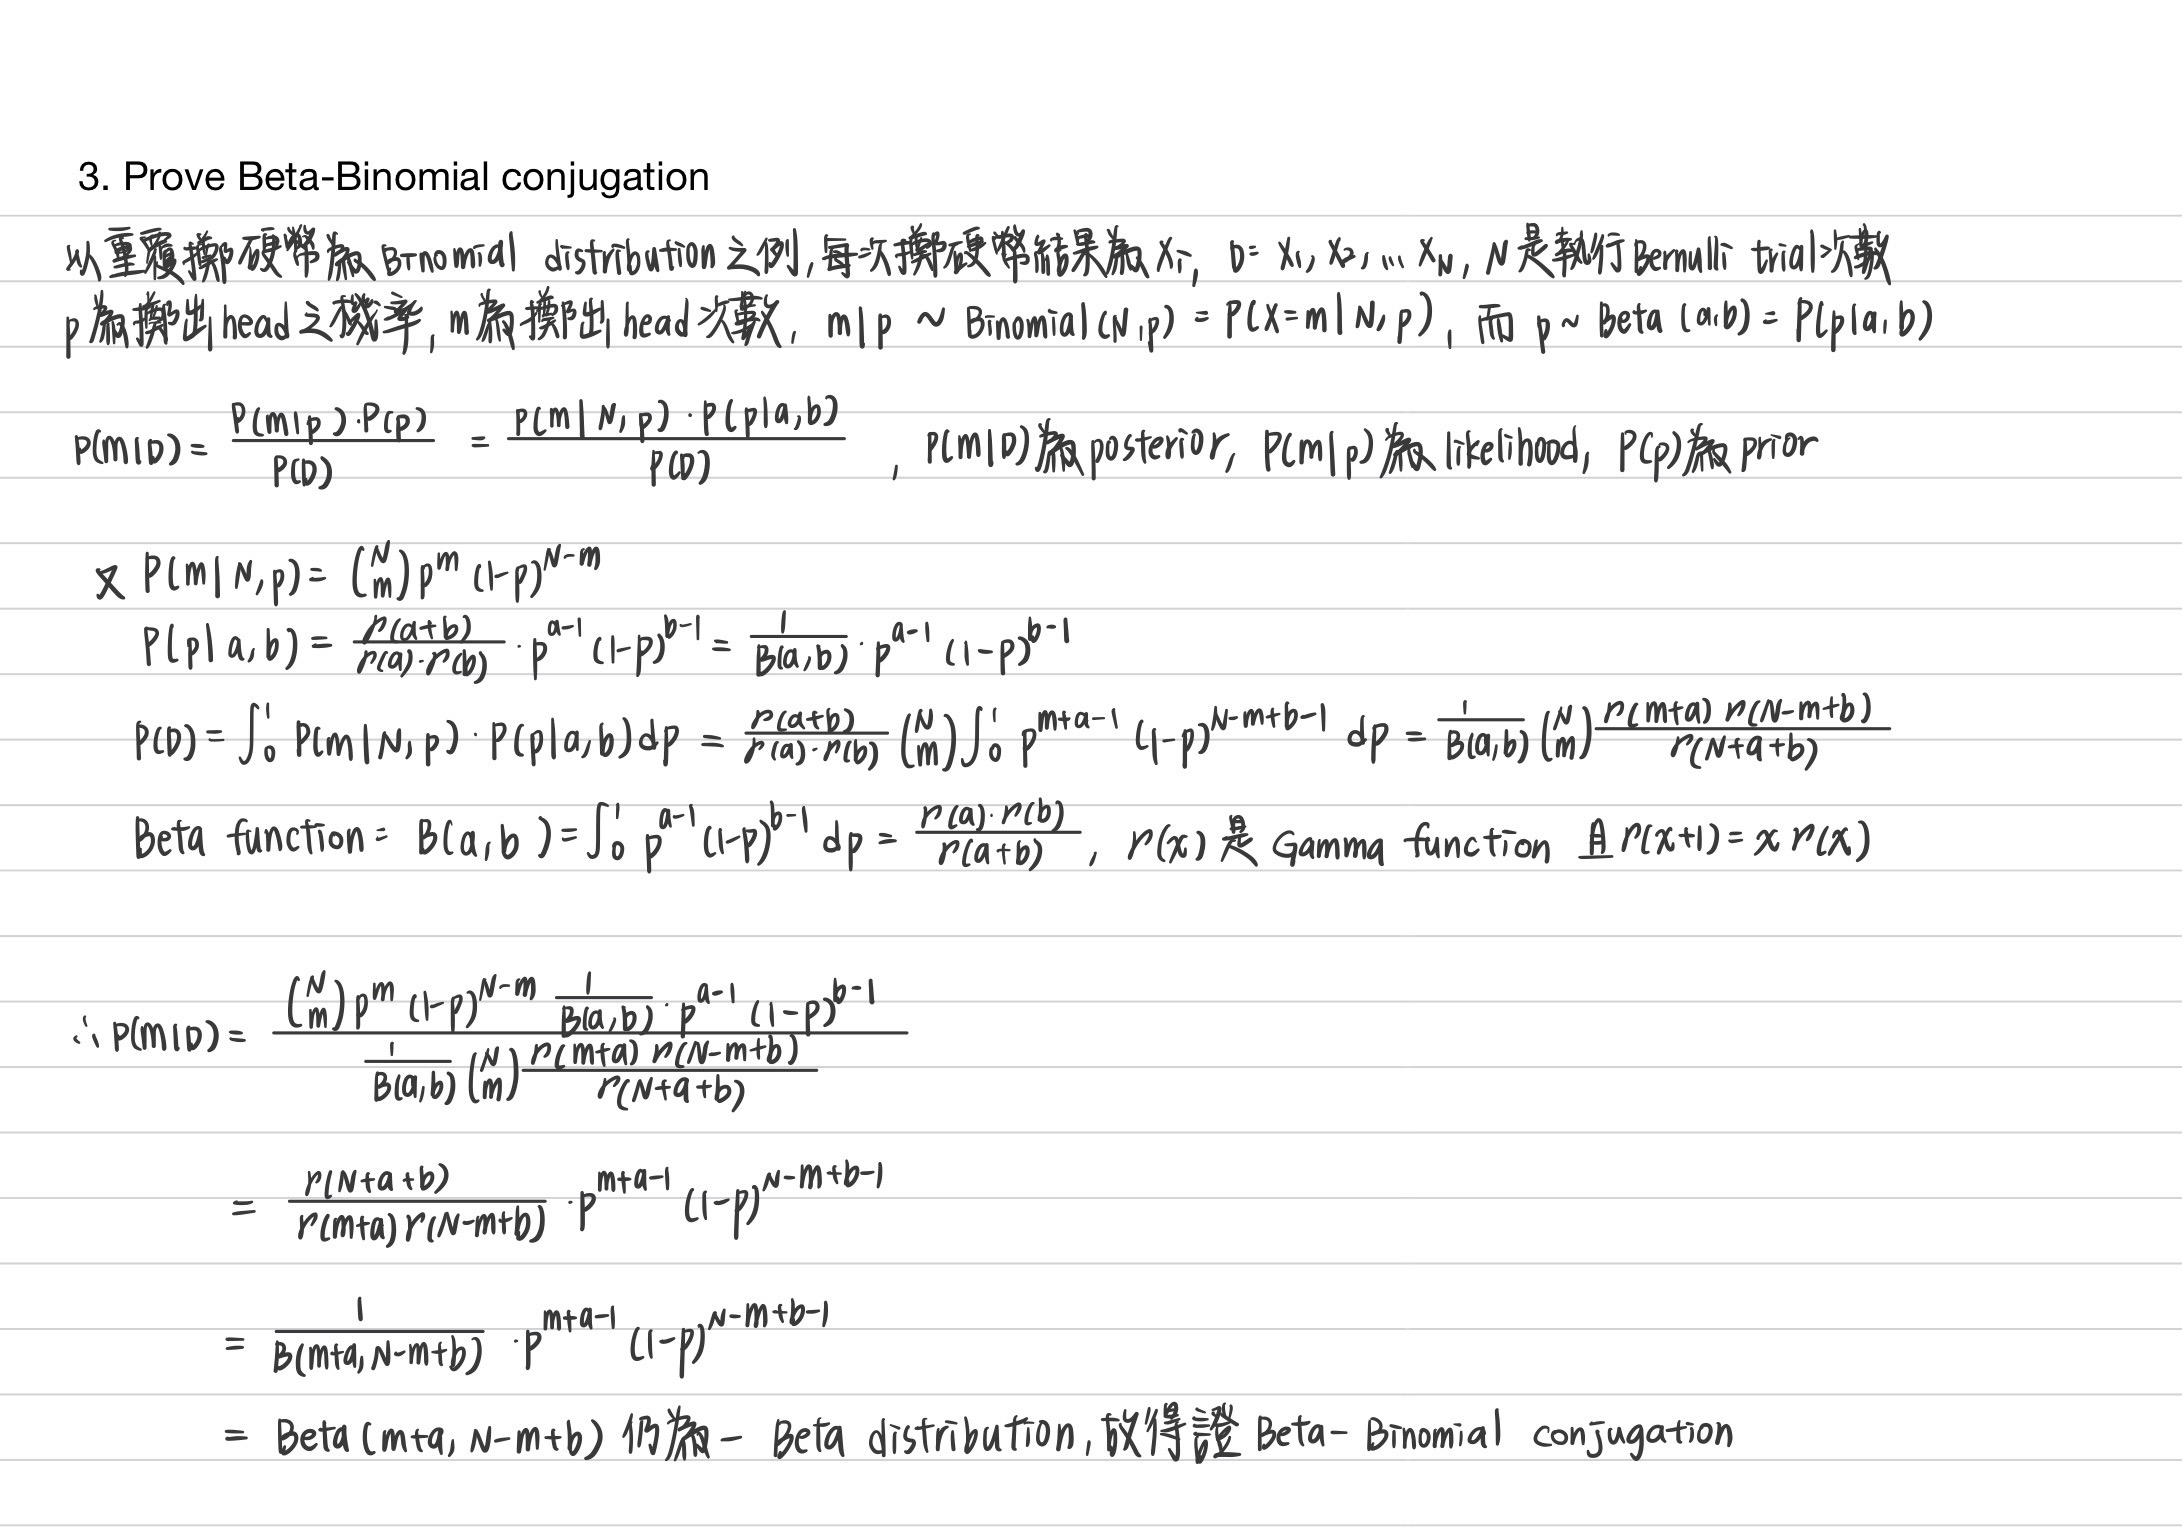 3. Prove Beta-Binomial conjugation
以重覆擲硬幣為 Binomial distribution 之例, 每次擲硬幣結果為 Xi, D= X1, X2, ... XN, N 是執行 Bernulli trial 次數
p 為擲出 head 之機率, m 為擲出 head 次數, m|p ~ Binomial(N,p) = P(X=m|N,p), 而 p~ Beta (a,b) = P(p|a,b)
P(m|D) = P(m|p)·P(p) / P(D) = P(m|N,p)·P(p|a,b) / P(D) , P(m|D)為 posterior, P(m|p)為 likelihood, P(p)為 prior
又 P(m|N,p) = (N m) p^m (1-p)^(N-m)
P(p|a,b) = Γ(a+b) / Γ(a)·Γ(b) · p^(a-1) (1-p)^(b-1) = 1 / B(a,b) · p^(a-1) (1-p)^(b-1)
P(D) = ∫₀¹ P(m|N,p)·P(p|a,b)dp = Γ(a+b) / Γ(a)·Γ(b) (N m) ∫₀¹ p^(m+a-1) (1-p)^(N-m+b-1) dp = 1 / B(a,b) (N m) Γ(m+a) Γ(N-m+b) / Γ(N+a+b)
Beta function = B(a,b) = ∫₀¹ p^(a-1) (1-p)^(b-1) dp = Γ(a)·Γ(b) / Γ(a+b) , Γ(x) 是 Gamma function 且 Γ(x+1) = x Γ(x)
∴ P(m|D) = (N m) p^m (1-p)^(N-m) 1 / B(a,b) · p^(a-1) (1-p)^(b-1) / 1 / B(a,b) (N m) Γ(m+a) Γ(N-m+b) / Γ(N+a+b)
= Γ(N+a+b) / Γ(m+a) Γ(N-m+b) · p^(m+a-1) (1-p)^(N-m+b-1)
= 1 / B(m+a, N-m+b) · p^(m+a-1) (1-p)^(N-m+b-1)
= Beta(m+a, N-m+b) 仍為一 Beta distribution, 故得證 Beta-Binomial conjugation